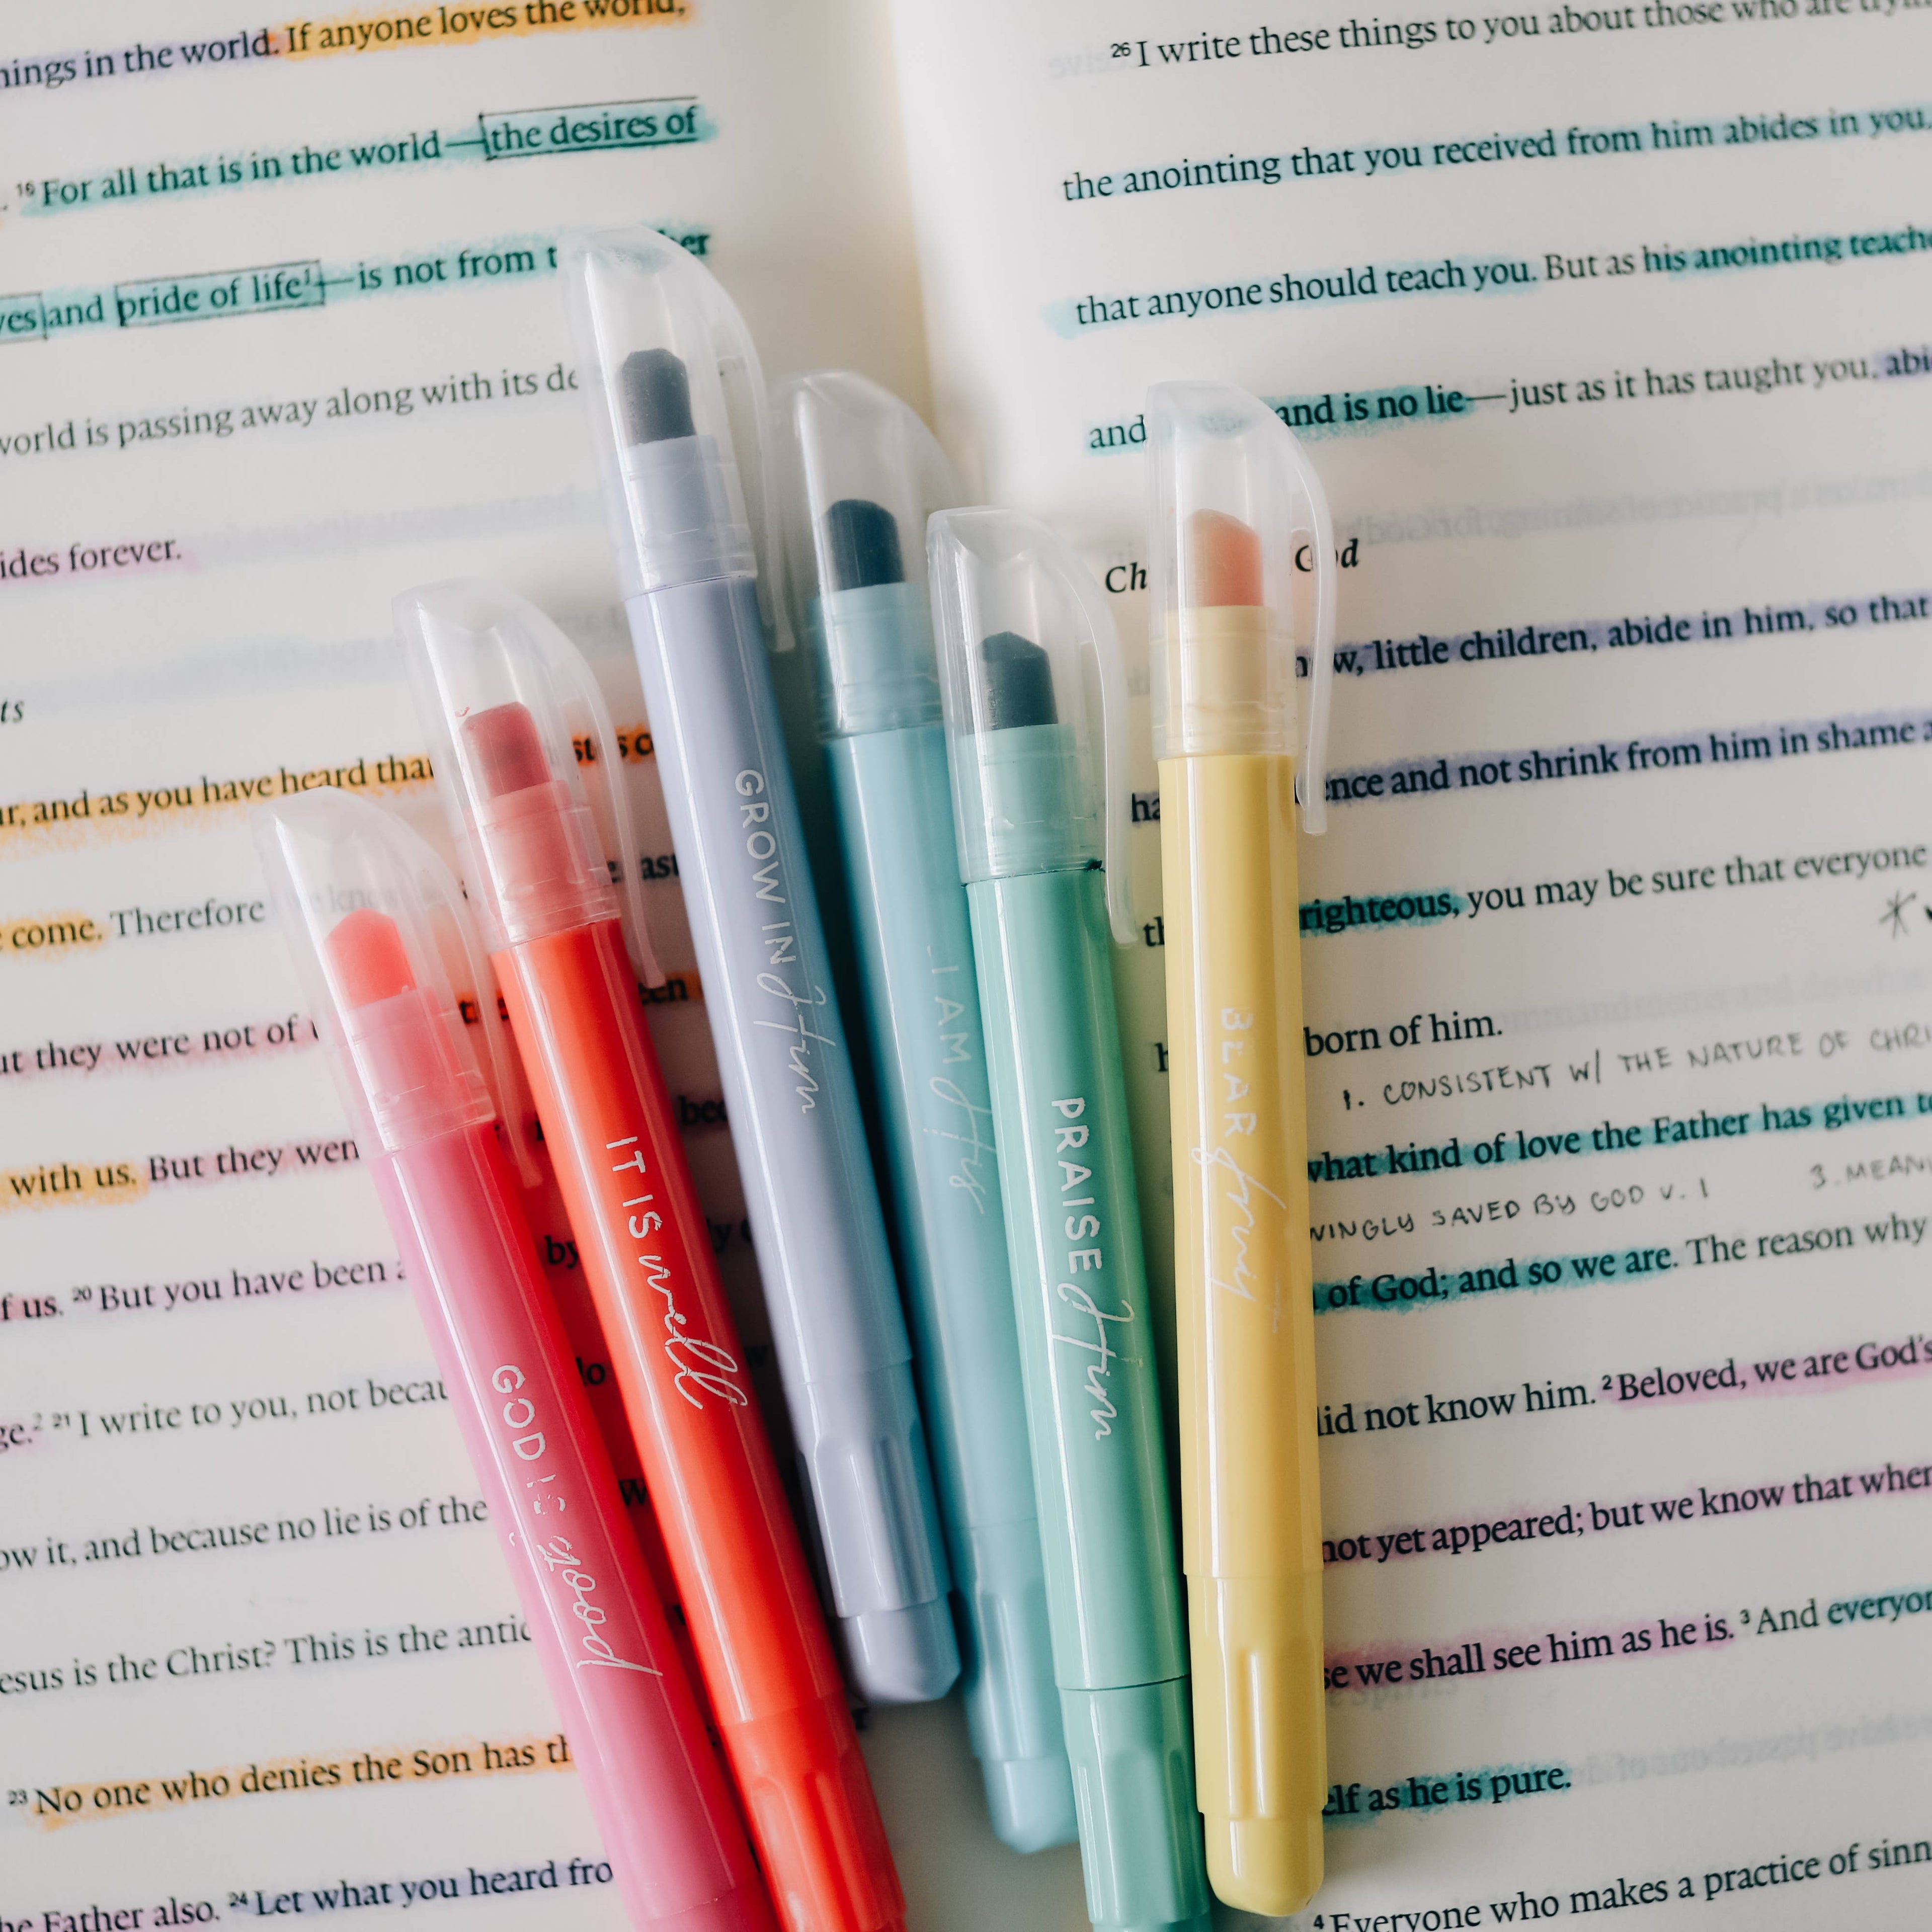 things in the world. If anyone loves the world,
16 For all that is in the world—the desires of
and pride of life1—is not from
world is passing away along with its
forever.
and as you have heard that
come. Therefore
they were not of
with us. But they
of us. 20 But you have been
2 21 I write to you, not
it, and because no lie is of the
is the Christ? This is the
23 No one who denies the Son has
Father also. 24 Let what you heard
26 I write these things to you about those who are
the anointing that you received from him abides in you,
that anyone should teach you. But as his anointing
and and is no lie—just as it has taught you,
God
little children, abide in him, so that
and not shrink from him in shame
righteous, you may be sure that everyone
born of him.
1. CONSISTENT W/ THE NATURE OF
what kind of love the Father has given
SAVED BY GOD V. 1 3.
of God; and so we are. The reason why
did not know him. 2 Beloved, we are God's
not yet appeared; but we know that
we shall see him as he is. 3 And
as he is pure.
4 Everyone who makes a practice of
GOD IS good
IT IS well
GROW IN Him
I AM His
PRAISE Him
BEAR fruit